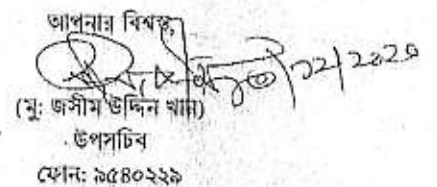 আপনার বিশ্বস্ত,
(মু: জসীম উদ্দিন খান)
উপসচিব
ফোন: ৯৫৪০২২৯